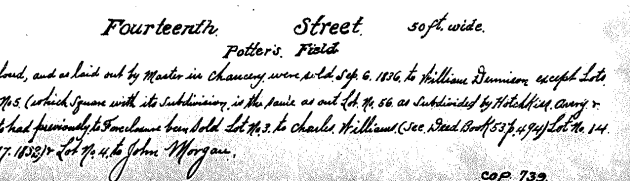 Fourteenth Street 50 ft. wide.
Potter's Field
and as laid out by Master in Chancery, were sold, Sep. 6. 1836, to William Dennison except Lots
No 5. (which Square with its Subdivision, is the same as out Lot No. 56. as Subdivided by Hotchkiss, Avery &
had previously to Foreclosure been sold Lot No. 3. to Charles Williams, (See, Deed Book 53 p. 494) Lot No. 14.
7. 1832) & Lot No. 4. to John Morgan.
COP. 739.